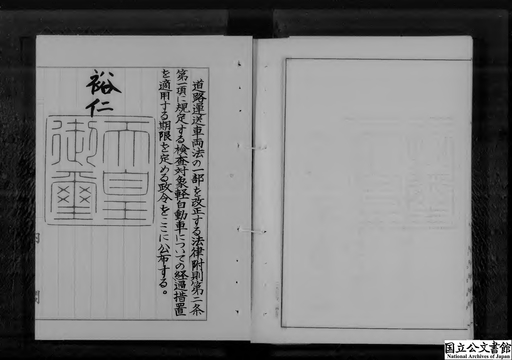 道路運送車両法の一部を改正する法律附則第二条
第一項に規定する検査対象軽自動車についての経過措置
を適用する期限を定める政令をここに公布する。
裕仁
天皇
御璽
内閣
国立公文書館
National Archives of Japan